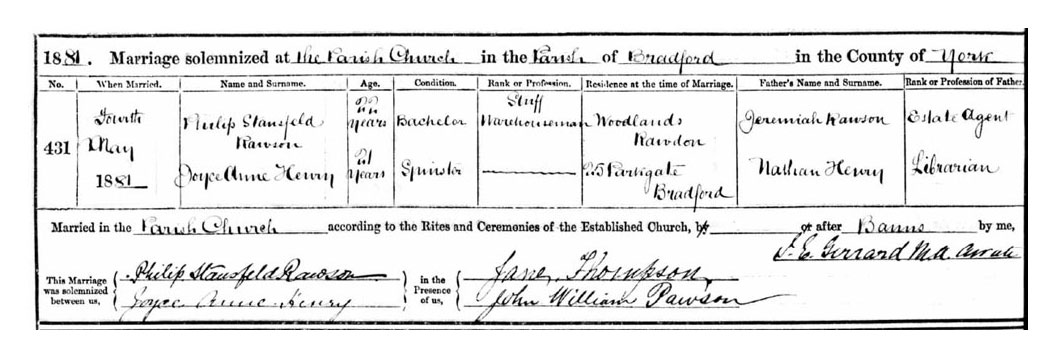 1881. Marriage solemnized at the Parish Church in the Parish of Bradford in the County of York
No. When Married. Name and Surname. Age. Condition. Rank or Profession. Residence at the time of Marriage. Father's Name and Surname. Rank or Profession of Father.
431 Fourth May 1881 Philip Stansfeld Rawson 22 years Bachelor Stuff Warehouseman Woodlands Rawdon Jeremiah Rawson Estate Agent
Joyce Anne Henry 21 years Spinster 25 Bradford Nathan Henry Librarian
Married in the Parish Church according to the Rites and Ceremonies of the Established Church, by or after Banns by me,
J. E. Gerrard M.A. Curate
This Marriage was solemnized between us, Philip Stansfeld Rawson in the Presence of us, Jane Thompson
Joyce Anne Henry John William Pawson